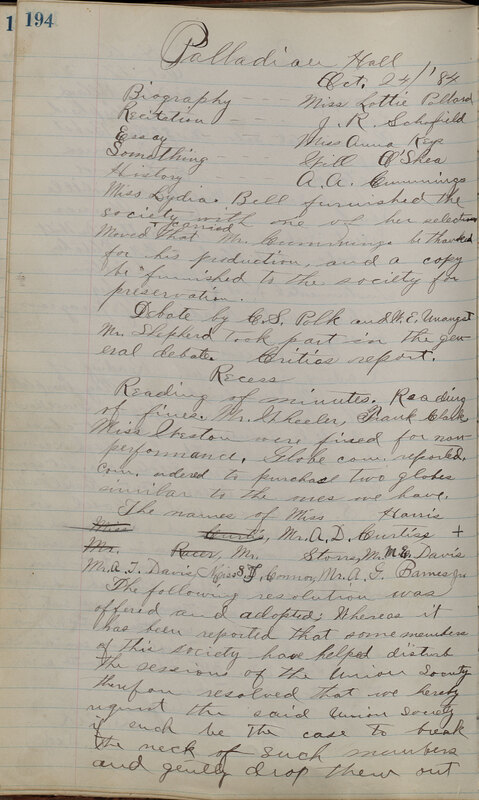 1 194
Palladian Hall
Oct. 24/'84
Biography -- Miss Lottie Pollard
Recitation -- J. R. Schofield
Essay -- Miss Anna Keys
Something -- Will O'Shea
History -- A. A. Cummings
Miss Lydia Bell furnished the
society with one of her selections
carried
Moved that Mr. Cummings be thanked
for his production, and a copy
be furnished to the society for
preservation.
Debate by C. S. Polk and W. E. Unangst
Mr. Shepherd took part in the gen-
eral debate. Critics report.
Recess
Reading of minutes. Reading
of fines. Mr. Wheeler, Frank Clark
Miss Weston were fined for non
performance. Globe com. reported.
Com. ordered to purchase two globes
similar to the ones we have.
The names of Miss Harris
Miss Curtis, Mr. A. D. Curtiss +
Mr. Racer, Mr. Storrs, Mr. M. E. Davis
Mr. A. T. Davis, Miss S. J. Connor, Mr. A. G. Barnes Jr.
The following resolution was
offered and adopted: Whereas it
has been reported that some members
of this society have helped disturb
the sessions of the Union Society
therfore resolved that we hereby
request the said Union Society
if such be the case to break
the neck of such members
and gently drop them out